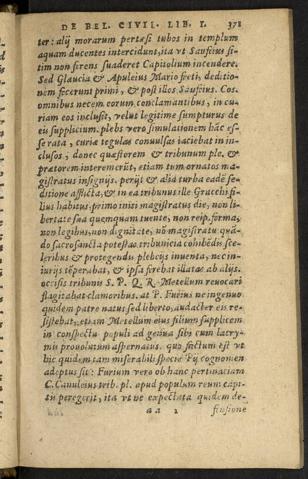 DE BEL. CIVIL. LIB. I. 378
ter: alij morarum pertæsi tubos in templum
aquam ducentes intercidunt, ita vt Saufeius si-
tim non ferens suaderet Capitolium incendere.
Sed Glaucia & Apuleius Mario freti, deditio-
nem fecerunt primi, & post illos Saufeius. Cos.
omnibus necem eorum conclamantibus, in cu-
riam eos inclusit, velut legitime sumpturus de
eis supplicium. plebs vero simulationem hãc es-
se rata, curiæ tegulas conuulsas iaciebat in in-
clusos, donec quæstorem & tribunum ple. &
prætorem interemerit, etiam tum ornatos ma-
gistratus insignijs. perijt & alia turba eadẽ se-
ditione afflicta, & in ea tribunus ille Gracchi fi-
lius habitus, primo initi magistratus die, non li-
bertate sua quemquam tuente, non reip. forma,
non legibus, non dignitate, nõ magistratu, quã-
do sacrosancta potestas tribunicia cohibẽdis sce-
leribus & protegendæ plebeys inuenta, nec in-
iurijs tẽperabat, & ipsa ferebat illatas ab alijs.
occisis tribunis S. P. Q. R. Metellum reuocari
flagitabat clamoribus. at P. Furius ne ingenuo
quidem patre natus sed liberto, audacter eis re-
sistebat, etiam Metellum eius filium supplicem
in conspectu populi ad genua sibi cum lacry-
mis prouolutum aspernatus. quo factum est vt
hic quidem tam miserabili specie Pij cognomen
adeptus sit: Furium vero ob hanc pertinaciam
C. Canuleius trib. pl. apud populum reum capi-
tis peregerit, ita vt ne expectata quidem de-
aa 2 fensione